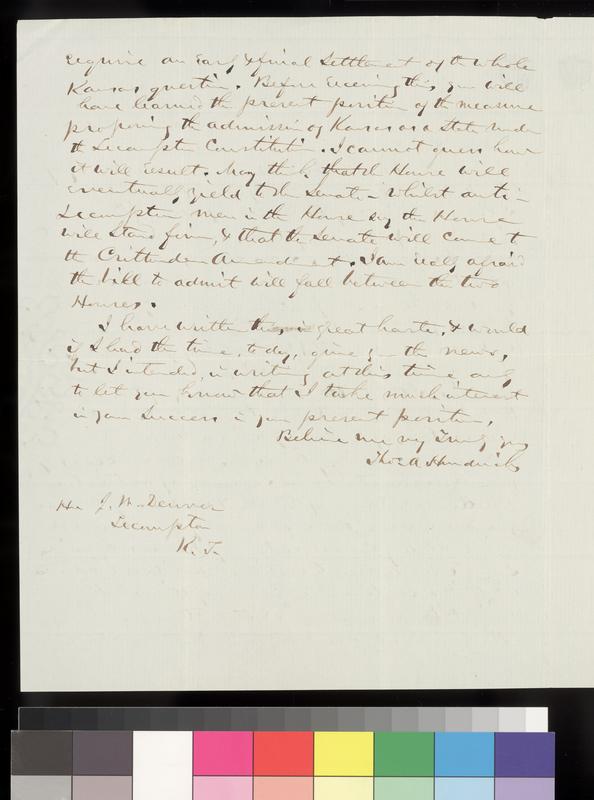 require an early & final settlement of the whole
Kansas question. Before receiving this you will
have learned the present position of the measure
proposing the admission of Kansas as a State under
the Lecompton Constitution. I cannot guess how
it will result. Many think that the House will
eventually yield to the Senate - Whilst anti-
Lecompton men in the House say the House
will stand firm, & that the Senate will come to
the Crittenden Amendment. I am really afraid
the bill to admit will fall between the two
Houses.
I have written in great haste, & would
if I had the time, today, give you the news,
but I intended, in writing at this time only
to let you know that I take much interest
in your success in your present position.
Believe me very truly yrs
Thos A Hendricks
Hon J. W. Denver
Lecompton
K. T.